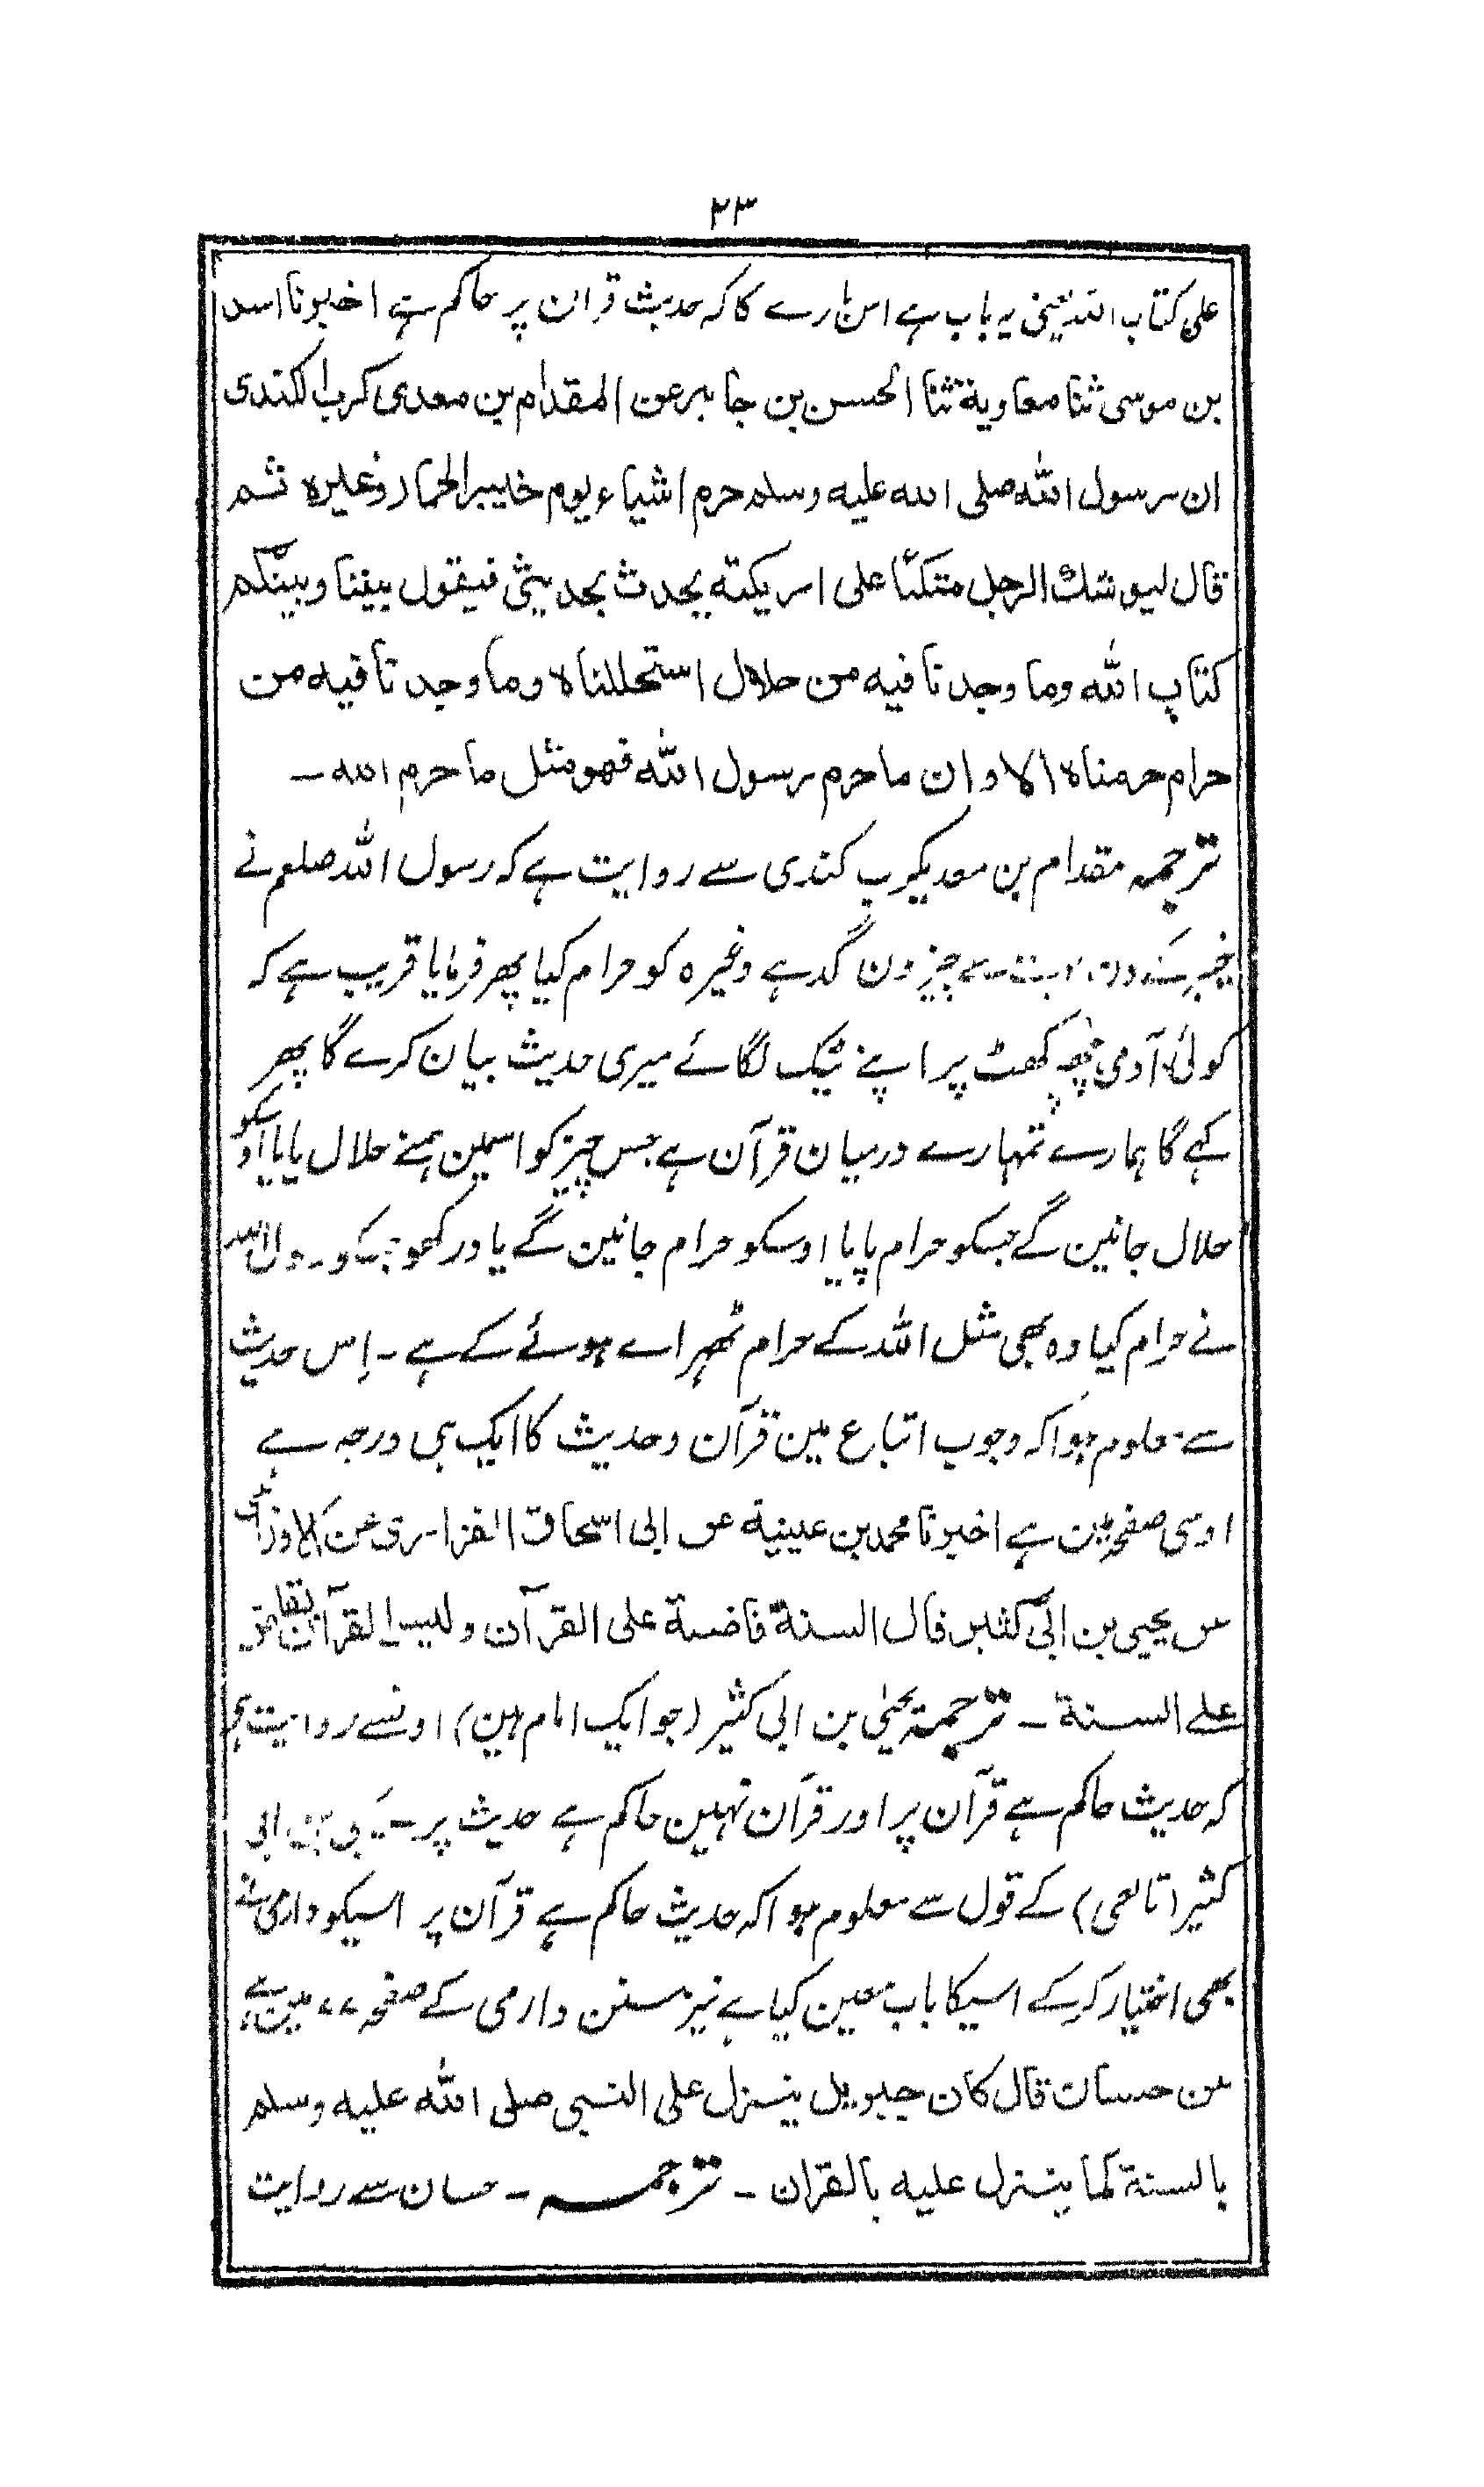 ۲۳
علی کتاب اللہ یعنی یہ باب ہے اس بارے کا کہ حدیث قران پر حاکم ہے اخبرنا اسد
بن موسی ثنا معاویة ثنا الحسن بن جابر عن المقدام بن معدی کرب الکندی
ان رسول اللہ صلی اللہ علیه وسلم حرم اشیاء یوم خیبر الحمار وغیرہ ثم
قال لیوشك الرجل متکئا علی اریکته یحدث بحدیثی فیقول بیننا وبینکم
کتاب اللہ وما وجدنا فیه من حلال استحللناہ وما وجدنا فیه من
حرام حرمناہ الا وان ما حرم رسول اللہ فهو مثل ما حرم اللہ ـ
ترجمہ مقدام بن معدیکرب کندی سے روایت ہے کہ رسول اللہ صلعم نے
خیبر کے دن بہت سے چیزون گدہے وغیرہ کو حرام کیا پھر فرمایا قریب ہے کہ
کوئی آدمی چھپرکھٹ پر اپنے ٹیک لگائے میری حدیث بیان کرے گا پھر
کہے گا ہمارے تمہارے درمیان قرآن ہے جس چیز کو اسمین ہمنے حلال پایا اوسکو
حلال جانین گے جسکو حرام پایا اوسکو حرام جانین گے یاد رکھو جسکو رسول اللہ
نے حرام کیا وہ بھی مثل اللہ کے حرام ٹھہراے ہوئے کے ہے ۔ اِس حدیث
سے معلوم ہوا کہ وجوب اتباع مین قرآن وحدیث کا ایک ہی درجہ ہے
اوسی صفحہ مین ہے اخبرنا محمد بن عیینة عن ابی اسحاق الفزاری عن الاوزاعی
عن یحیی بن ابی کثیر قال السنة قاضیة علی القرآن ولیس القرآن بقاض
علے السنة ۔ ترجمة یحیٰی بن ابی کثیر (جو ایک امام ہین) اونسے روایت ہے
کہ حدیث حاکم ہے قرآن پر اور قرآن نہین حاکم ہے حدیث پر ۔ یحیی بن ابی
کثیر (تابعی) کے قول سے معلوم ہوا کہ حدیث حاکم ہے قرآن پر اسیکو دارمی نے
بھی اختیار کر کے اسیکا باب معین کیا ہے نیز سنن دارمی کے صفحہ ۷۷ مین ہے
عن حسان قال کان جبریل ینزل علی النبی صلی اللہ علیه وسلم
بالسنة کما ینزل علیه بالقران ۔ ترجمہ ۔ حسان سے روایت